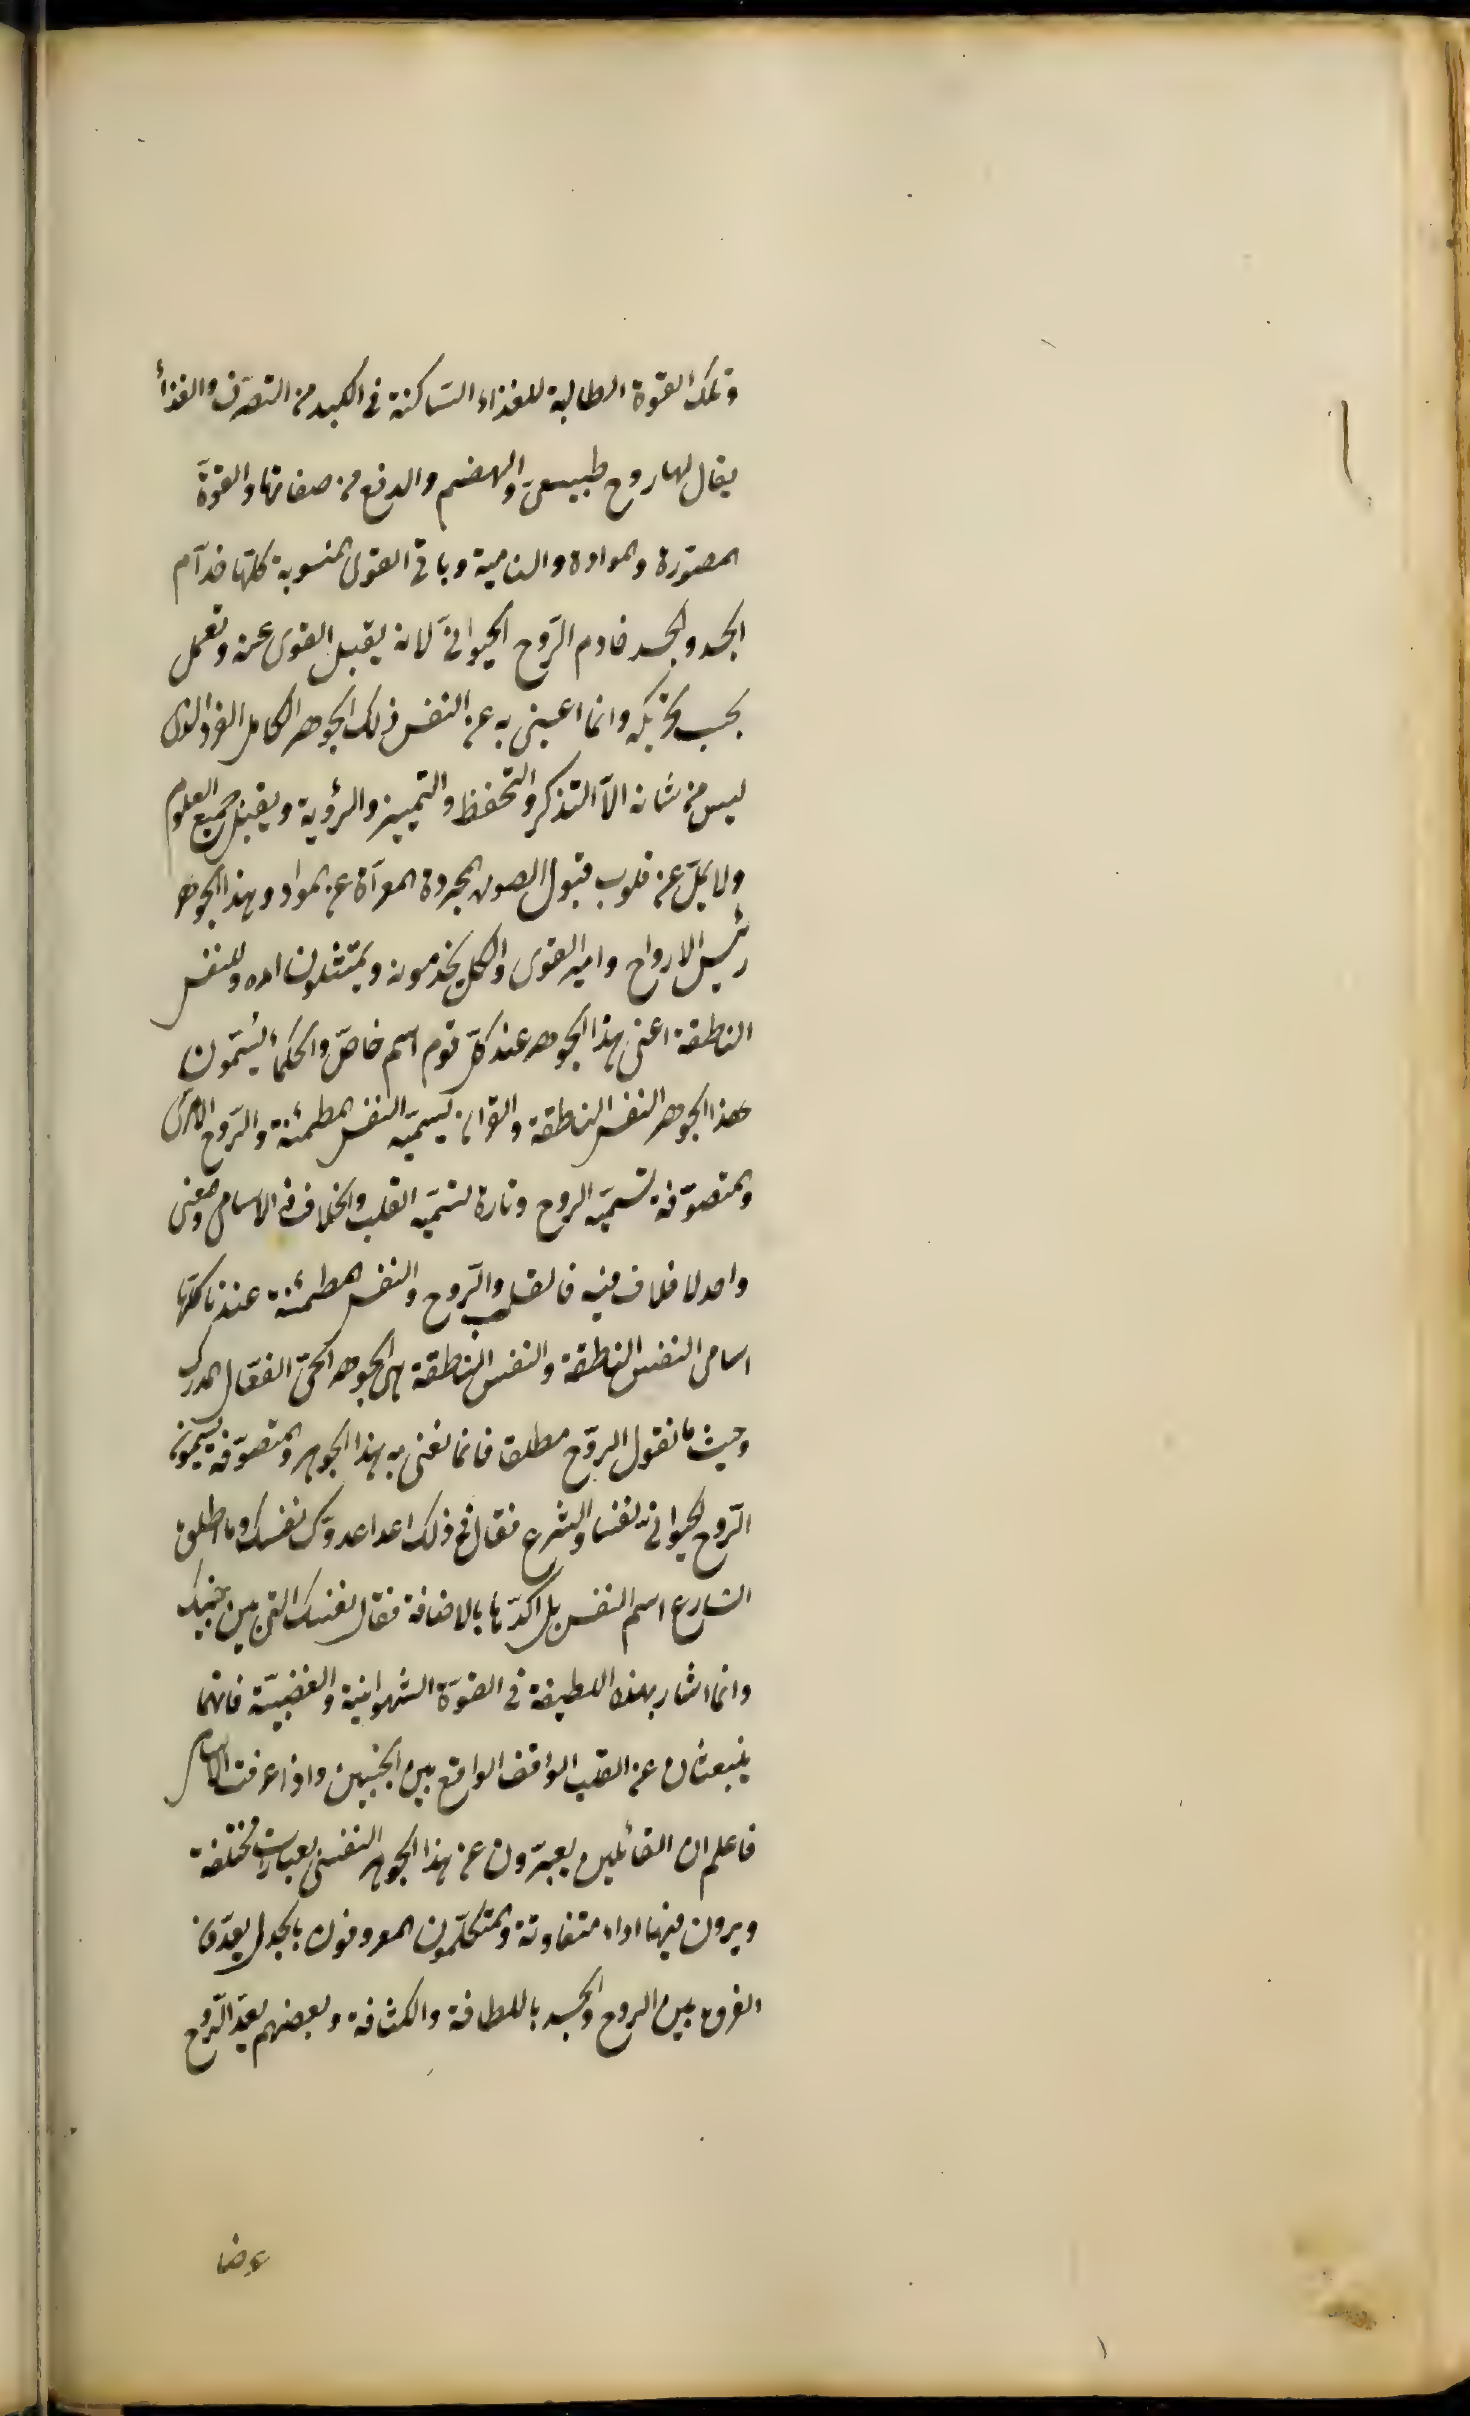 وتلك القوة الطالبة للغذاء الساكنة في الكبد من التصرف والغذاء
يقال لها روح طبيعى والهضم والدفع من صفاتها والقوة
المصورة والموادة والنامية وباقى القوى المنسوبة كلها خدام
الجسد والجسد خادم الروح الحيوانى لانه يقبل القوى عنه وتعمل
بحسب تحريكه وانما اعنى به عن النفس ذلك الجوهر الكامل الفرد الذى
ليس من شانه الا التذكر والتحفظ والتمييز والرؤية ويقبل جميع العلوم
ولا يمل عن قبول الصور المجردة المعراة عن المواد وهذا الجوهر
رئيس الارواح وامير القوى والكل يخدمونه ويمتثلون امره وللنفس
الناطقة اعنى هذا الجوهر عند كل قوم اسم خاص والحكماء يسمون
هذا الجوهر النفس الناطقة والقران يسميه النفس المطمئنة والروح الامرى
والمتصوفة تسميه الروح وتارة تسميه القلب والخلاف فى الاسامى والمعنى
واحد لا خلاف فيه فالقلب والروح والنفس المطمئنة عندنا كلها
اسامى النفس الناطقة والنفس الناطقة هى الجوهر الحى الفعال المدرك
وحيث ما نقول الروح مطلق فانما نعنى به هذا الجوهر والمتصوفة يسمون
الروح الحيوانى نفسا والشرع فقال فى ذلك اعدا عدوك نفسك وما اطلق
الشارع اسم النفس بل اكدها بالاضافة فقال نفسك التى بين جنبيك
وانما اشار بهذه اللطيفة فى القوة الشهوانية والغضبية فانهما
ينبعثان عن القلب الواقف الواقع بين الجنبين واذا عرفت الاسامى
فاعلم ان القائلين يعبرون عن هذا الجوهر النفسى بعبارات مختلفة
ويرون فيها اراء متفاوتة والمتكلمون المعروفون بالجدل يعدون
الفرق بين الروح والجسد باللطافة والكثافة وبعضهم يعد الروح
عرضا